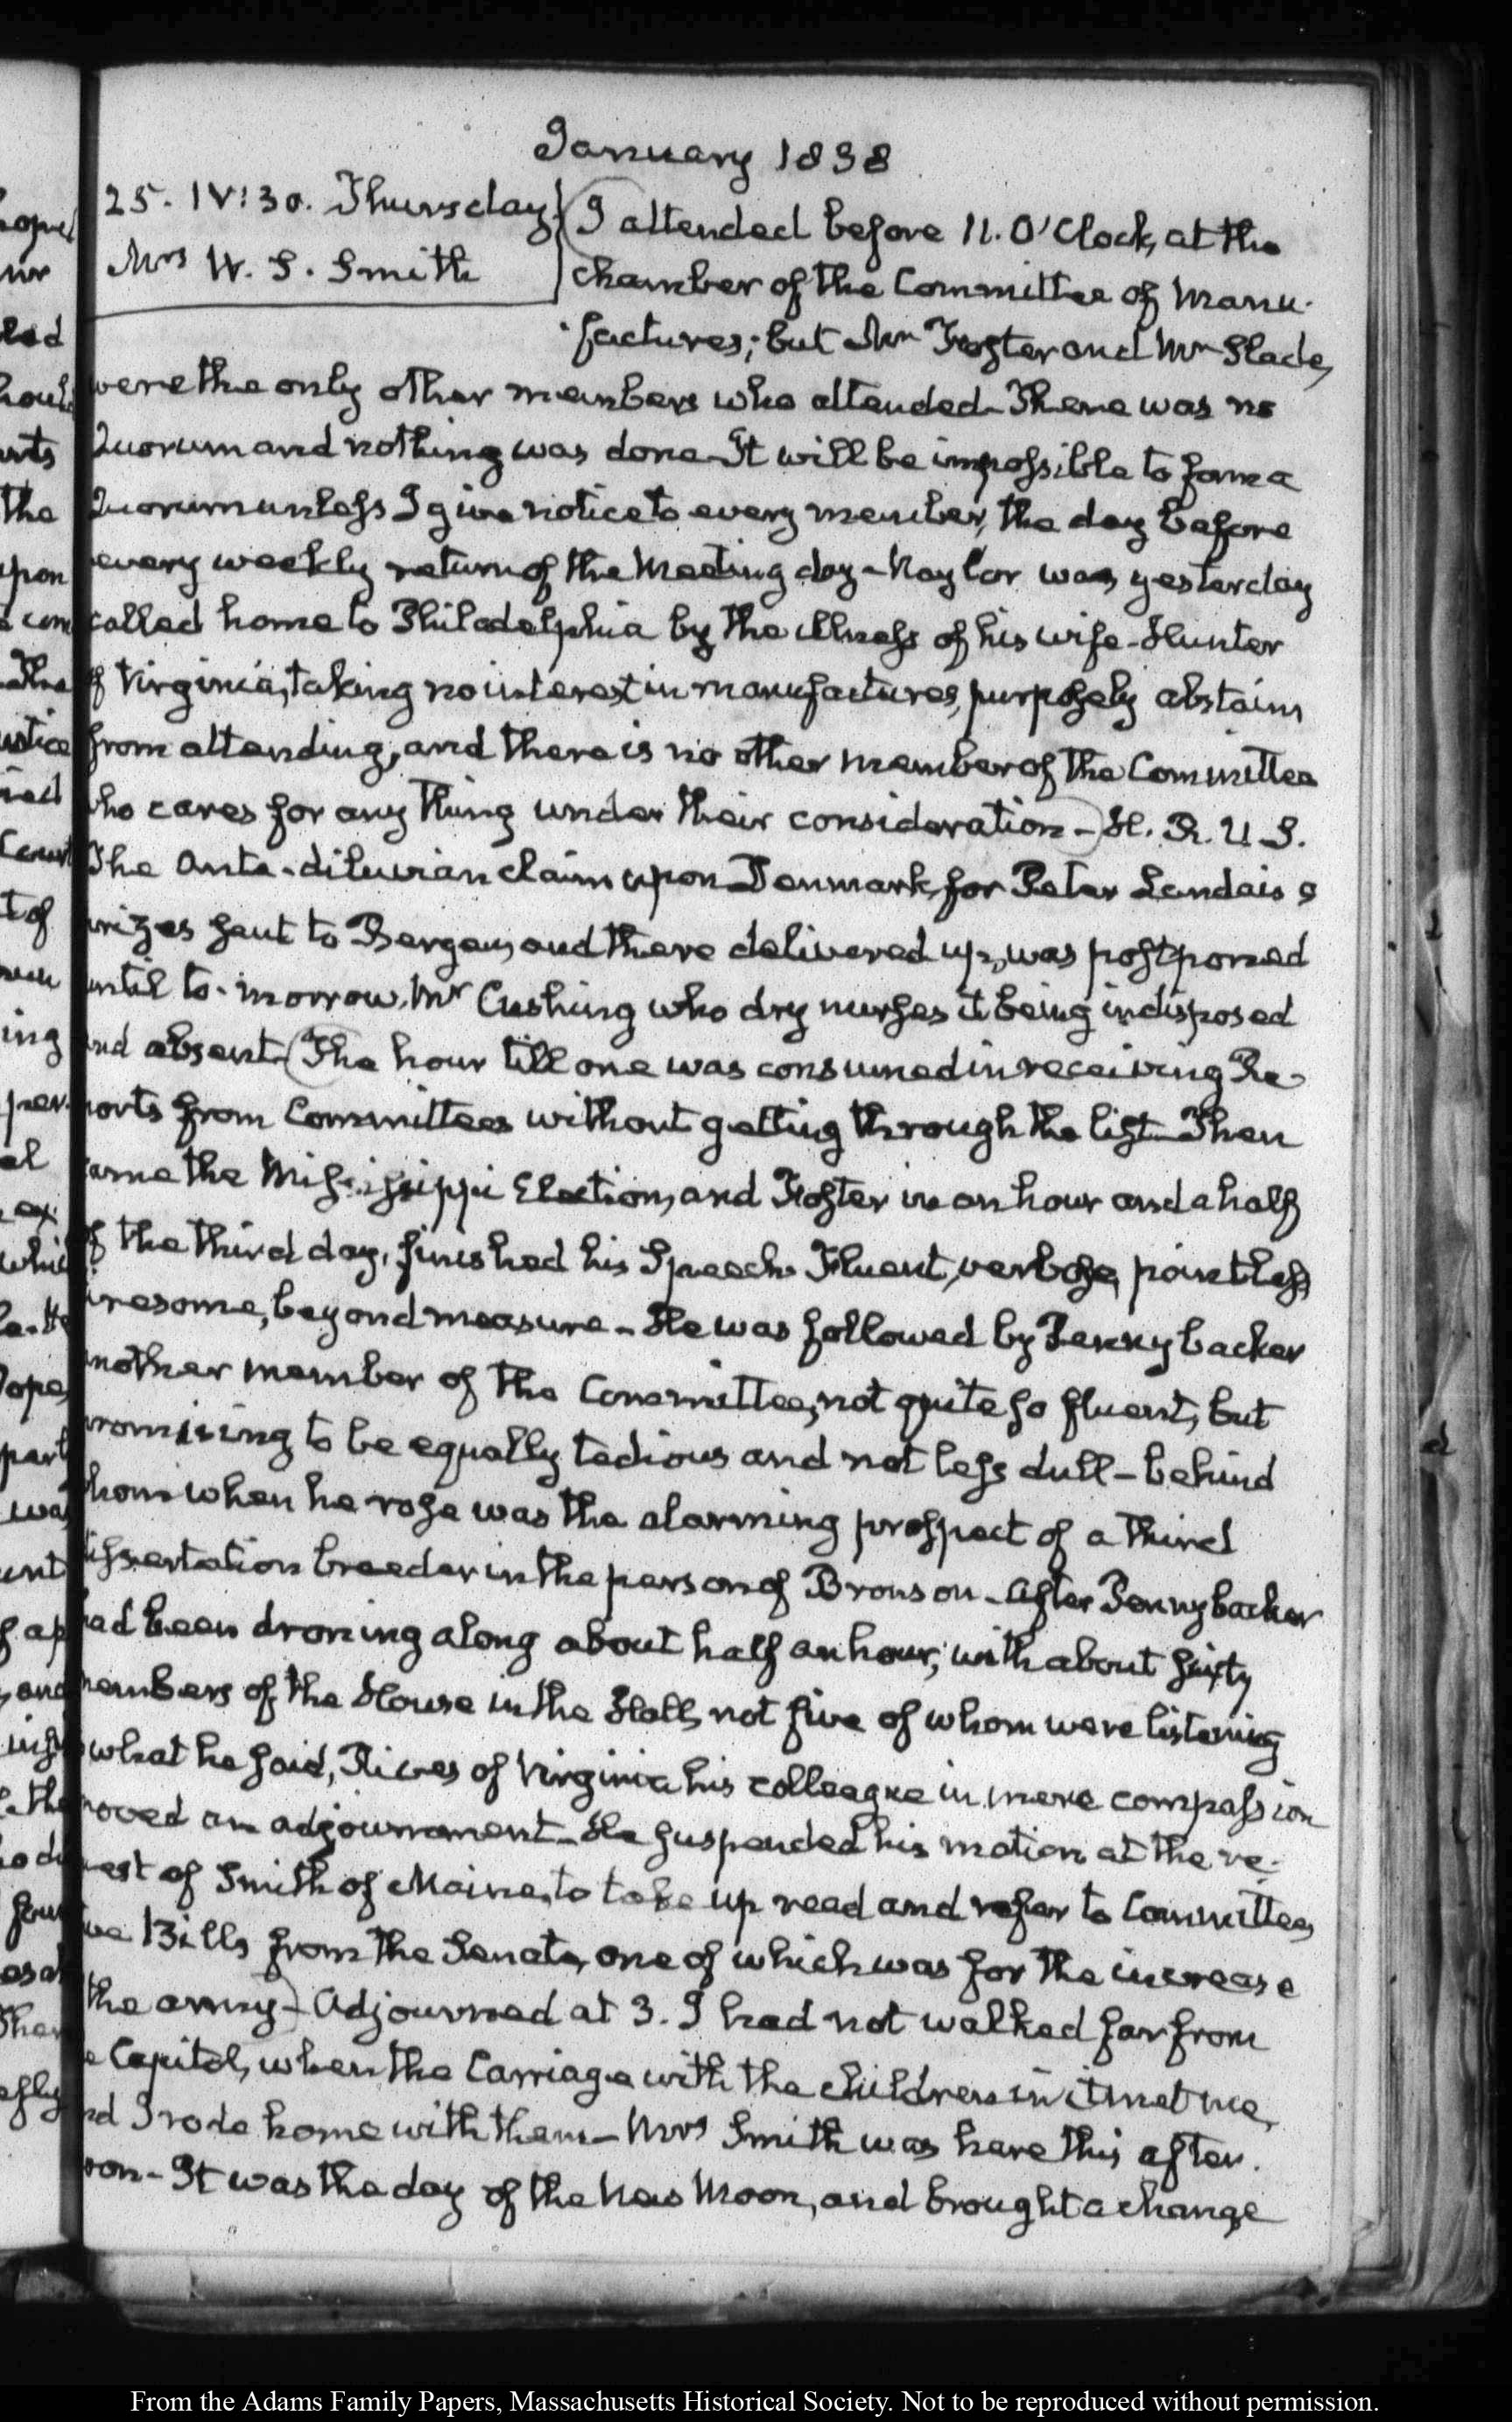 January 1838
25. IV:30. Thursday
Mrs W. S. Smith
I attended before 11. O'Clock, at the
chamber of the Committee of Manu-
factures; but Mr Foster and Mr Slade,
were the only other members who attended. There was no
Quorum and nothing was done. It will be impossible to form a
Quorum unless I give notice to every member, the day before
every weekly return of the Meeting day - Naylor was yesterday
called home to Philadelphia by the illness of his wife - Hunter
of Virginia, taking no interest in manufactures, purposely abstains
from attending, and there is no other member of the Committee
who cares for any thing under their consideration - H. R. U. S.
The Ante-diluvian claim upon Denmark, for Peter Landais's
prizes sent to Bergen, and there delivered up, was postponed
until to-morrow, Mr Cushing who dry nurses it being indisposed
and absent. The hour till one was consumed in receiving Re-
ports from Committees without getting through the list. Then
came the Mississippi Election, and Foster in an hour and a half
of the third day, finished his Speech. Fluent, verbose, pointless,
tiresome, beyond measure - He was followed by Pennybacker
another member of the Committee, not quite so fluent, but
promising to be equally tedious and not less dull - behind
whom when he rose was the alarming prospect of a third
dissertation breeder in the person of Bronson - After Pennybacker
had been droning along about half an hour, with about sixty
members of the House in the Hall, not five of whom were listening
to what he said, Rives of Virginia his colleague in mere compassion
moved an adjournment - He suspended his motion at the re-
quest of Smith of Maine, to take up read and refer to Committees
Bills from the Senate, one of which was for the increase
of the army - Adjourned at 3. I had not walked far from
the Capitol, when the Carriage with the children in it met me,
and I rode home with them - Mrs Smith was here this after-
noon - It was the day of the New Moon, and brought a change
From the Adams Family Papers, Massachusetts Historical Society. Not to be reproduced without permission.